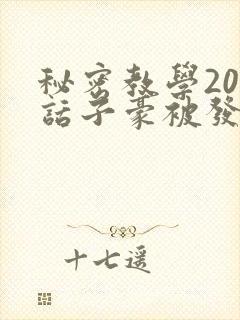 秘密教學20
話子豪被發
十七遥